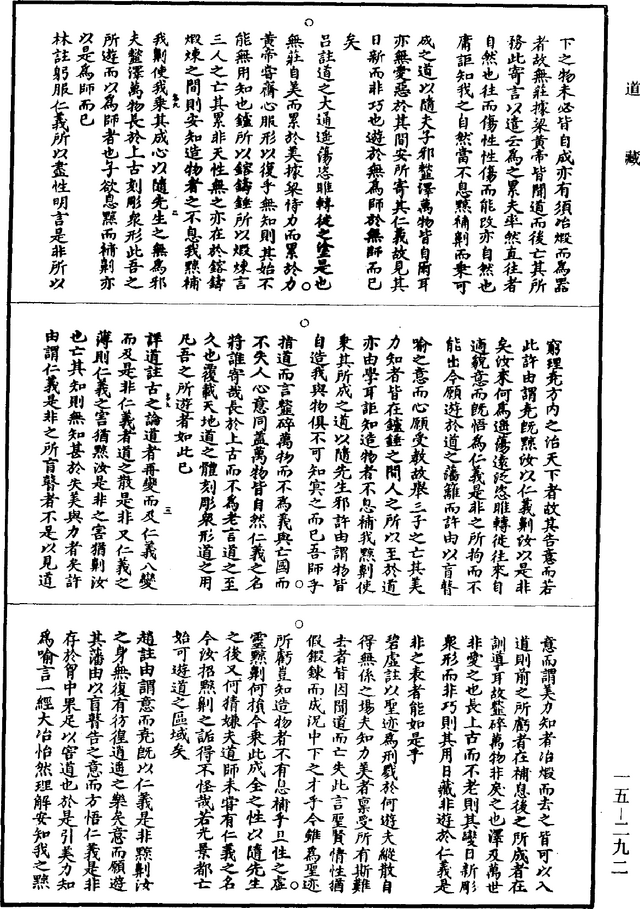 道藏
下之物未必皆自成亦有須冶煅而為器
者故無莊據梁黃帝皆聞道而後亡其所
務此寄言以遣云為之累夫率然直往者
自然也往而傷性性傷而能改亦自然也
庸詎知我之自然當不息黥補劓而乘可
成之道以隨夫子邪𩐎澤萬物皆自爾耳
亦無愛惡於其間安所寄其仁義故見其
日新而非巧也遊於無為師於無師而已
矣
呂註道之大通遥蕩恣睢轉徙之塗是也
無莊自美而累於美據梁恃力而累於力
黃帝齋心服形以復乎無知則其始不
能無用知也鑪所以鎔鑄錘所以煅煉言
三人之亡其累非天性無之亦在於鎔鑄
煅煉之間則安知造物者之不息我黥補
我劓使我乘其成心以隨先生之無為邪
夫𩐎澤萬物長於上古刻彫衆形此吾之
所遊而以為師者也子欲息黥而補劓亦
以是為師而已
林註躬服仁義所以盡性明言是非所以
窮理堯方内之治天下者故其告意而若
此許由謂堯既黥汝以仁義劓汝以是非
矣汝來何為遥蕩遠泛恣睢轉徙往來自
適貌意而既悟為仁義是非之所拘而不
能出今願遊於道之藩籬而許由以盲瞽
喻之意而心願受教故舉三子之亡其美
力知者皆在鑪錘之間人之所以至於道
亦由學耳詎知造物者不息補我黥劓使
乘其所成之道以隨先生邪許由謂物皆
自造我與物俱不可知冥之而已吾師乎
指道而言𩐎碎萬物而不為義與亡國而
不失人心意同蓋萬物皆自然仁義之名
將誰寄哉長於上古而不為老言道之至
久也覆載天地道之體刻彫衆形道之用
凡吾之所遊者如此已
詳道註古之論道者再變而及仁義八變
而及是非仁義者道之散是非又仁義之
薄則仁義之害猶黥汝是非之害猶劓汝
也亡其知則無知甚於失美與力者矣許
由謂仁義是非之所盲瞽者不足以見道
意而謂美力知者冶煅而去之皆可以入
道則前之所虧者在補息後之所成者在
訓導耳故𩐎碎萬物非戾之也澤及萬世
非愛之也長上古而不老則其變日新彫
衆形而非巧則其用日藏非遊於仁義是
非之表者能如是乎
碧虛註以聖迹為刑戮於何遊夫縱散自
得無係之場夫知力美者禀受所有斷難
去者皆因聞道而亡失此言聖賢情性猶
假鍛鍊而成況中下之才乎今雖為聖迹
所虧豈知造物者不有息補乎且性之虛
靈黥劓何損今乘此成全之性以隨先生
之後又何猜嫌夫道師未甞有仁義之名
今汝招黥劓之詬得不怪哉若光景都亡
始可遊道之區域矣
趙註由謂意而堯既以仁義是非黥劓汝
之身無復有彷徨逍遥之樂矣意而願遊
其藩由以盲瞽告之意而方悟仁義是非
存於胷中果足以害道也於是引美力知
為喻言一經大冶怡然理解安知我之黥
一五-二九二